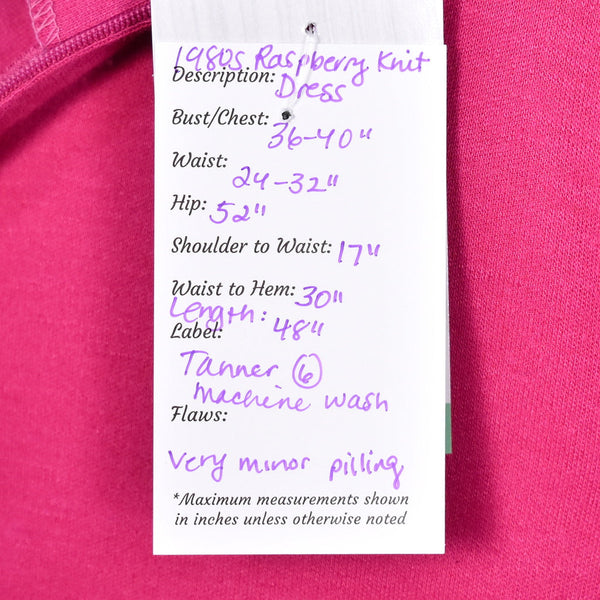 1980s Raspberry Knit
Description: Dress
Bust/Chest: 36-40"
Waist: 24-32"
Hip: 52"
Shoulder to Waist: 17"
Waist to Hem: 30"
Length: 48"
Label:
Tanner 6
machine wash
Flaws:
Very minor pilling
*Maximum measurements shown
in inches unless otherwise noted